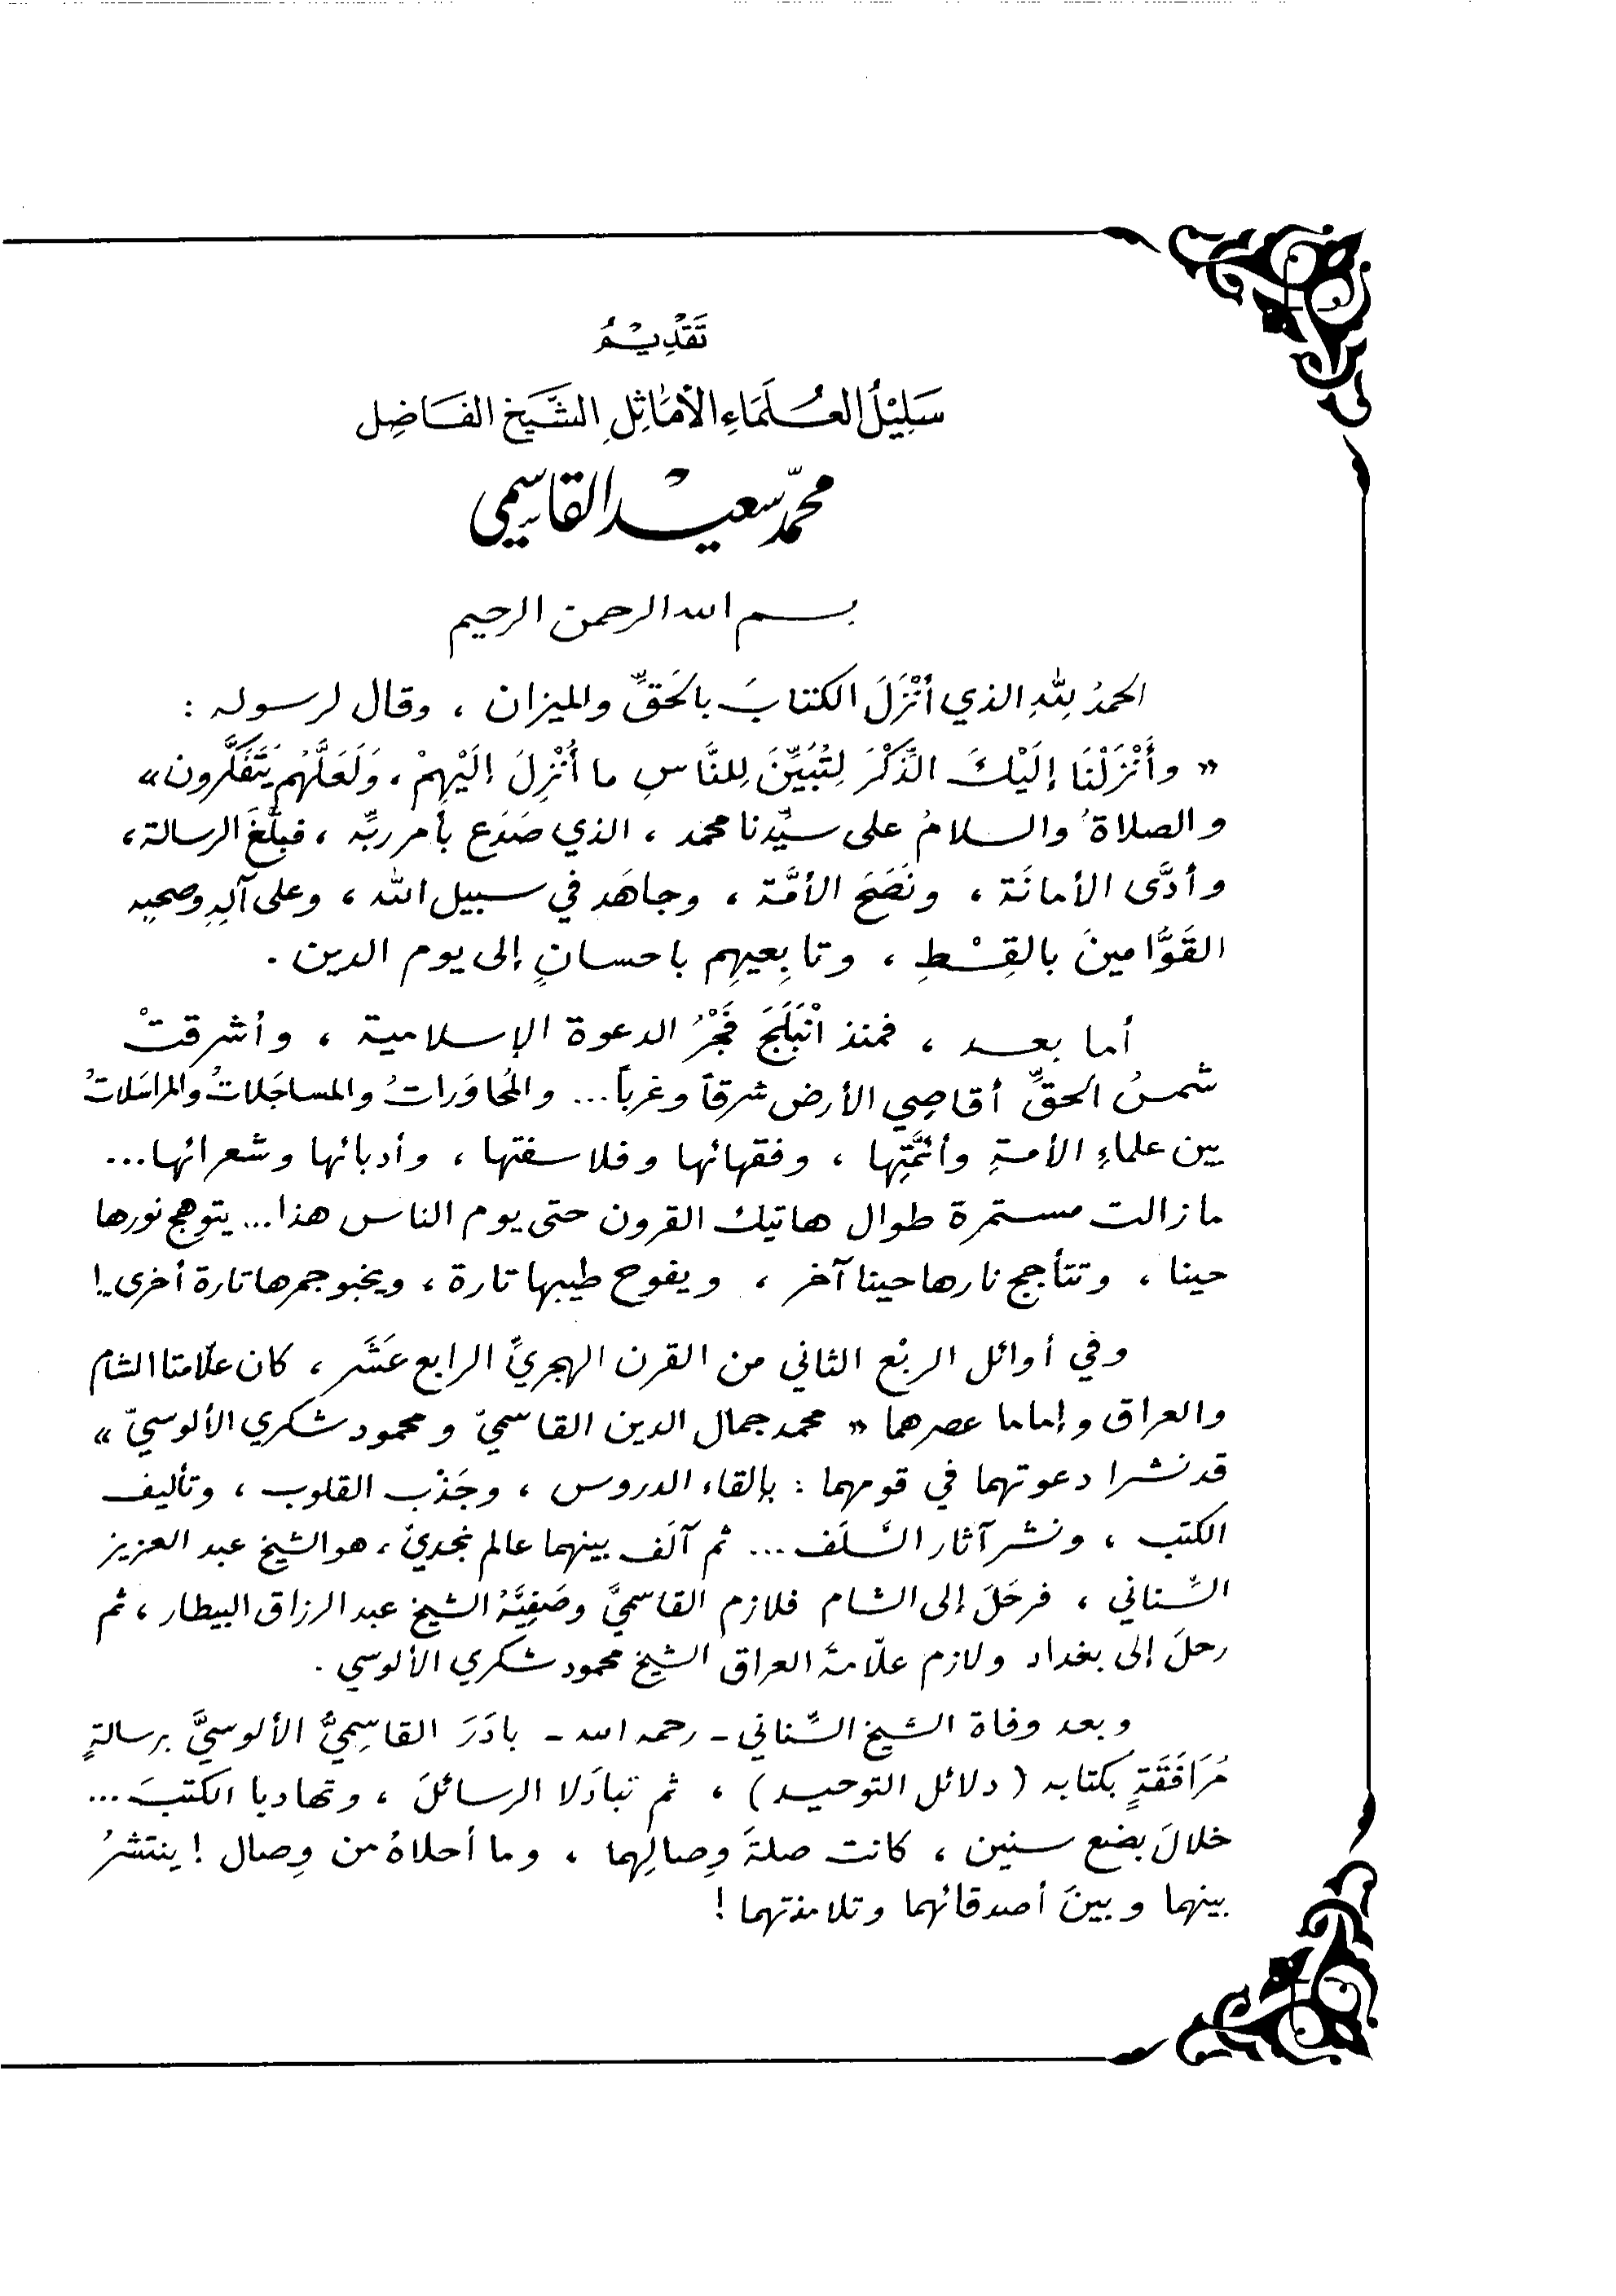 تَقْدِيْمُ
سَلِيْلُ العُلَمَاءِ الأَمَاثِلِ الشَّيَخِ الفَاضِل
محمّد سعيد القاسِمي
بسم الله الرحمن الرحيم
الحمدُ لِلّهِ الذي أنْزَلَ الكتابَ بالحَقِّ والميزان ، وقال لرسوله :
« وأَنْزَلْنَا إلَيْكَ الذِّكْرَ لِتُبَيِّنَ لِلنَّاسِ ما أُنْزِلَ إلَيْهِمْ ، وَلَعَلَّهُم يَتَّفَكَّرون »
والصلاةُ والسلامُ على سيِّدنا محمد ، الذي صَدَع بأمر ربِّه ، فبلَّغَ الرسالة ،
وأدَّى الأمانَة ، ونَصَحَ الأمَّة ، وجاهَد في سبيل الله ، وعلى آلِهِ وصحبِه
القَوَّامينَ بالقِسْطِ ، وتابِعيهِم باحسانٍ إلى يوم الدين .
أما بعد ، فمنذ انْبَلَجَ فَجْرُ الدعوة الإسلامية ، وأشرقتْ
شمسُ الحقِّ أقاصِي الأرض شرقاً وغرباً ... والمُحاوَراتُ والمساجَلاتُ والمراسَلاتُ
بين علماءِ الأمةِ وأئمَّتِها ، وفقهائها وفلاسفتها ، وأدبائها وشعرائها ...
ما زالت مستمرة طوال هاتيك القرون حتى يوم الناس هذا ... يتوهج نورها
حينا ، وتتأجج نارها حينا آخر ، ويفوح طيبها تارة ، ويخبو جمرها تارة أخرى .!
وفي أوائل الربْع الثاني من القرن الهجريِّ الرابع عَشَر ، كان علّامتا الشام
والعراق وإماما عصرهما « محمد جمال الدين القاسميّ ومحمود شكري الألوسيّ »
قد نشرا دعوتهما في قومهما : بإلقاء الدروس ، وجَذْب القلوب ، وتأليف
الكتب ، ونشر آثار السَّلَف ... ثم آلَف بينهما عالم نجديّ ، هو الشيخ عبد العزيز
السِّناني ، فرحَلَ إلى الشام فلازم القاسميَّ وصَفِيَّهُ الشيخ عبد الرزاق البيطار ، ثم
رحلَ إلى بغداد ولازم علّامةَ العراق الشيخ محمود شكري الألوسي .
وبعد وفاة الشيخ السِّناني - رحمه الله - بادَرَ القاسِميُّ الألوسيَّ برسالةٍ
مُرَافَقَةٍ بكتابه ( دلائل التوحيد ) ، ثم تبادَلا الرسائلَ ، وتهاديا الكتبَ ...
خلالَ بضع سنين ، كانت صلةَ وِصالِهما ، وما أحلاهُ من وِصال ! ينتشرُ
بينهما وبينَ أصدقائهما وتلامذتهما !